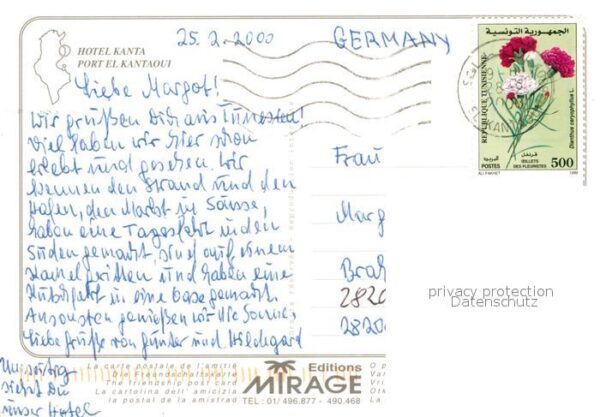 25.2.2000 GERMANY
HOTEL KANTA
PORT EL KANTAOUI
Liebe Margot!
Wir grüßen Dich aus Tunesien!
Viel haben wir hier schon
erlebt und gesehen. Wir
kennen den Strand und den
Hafen, den Markt in Sousse,
haben eine Tagesfahrt in den
Süden gemacht, sind auf einem
Kamel geritten und haben eine
Kutschfahrt in eine Oase gemacht.
Ansonsten genießen wir die Sonne.
Liebe Grüße von Günter und Hildegard
Umseitig
siehst Du
unser Hotel
Frau
Marg
Brah
2820
28200
الجمهورية التونسية
REPUBLIQUE TUNISIENNE
Dianthus caryophyllus L.
قرنفل
البريد
POSTES
ŒILLETS
DES FLEURISTES
500
1999
privacy protection
Datenschutz
La carte postale de l'amitié
Die Freundschaftskarte
The friendship post card
La cartolina dell' amicizia
la postal de la amistad
Editions
MIRAGE
TEL: 01/ 496.877 - 490.468